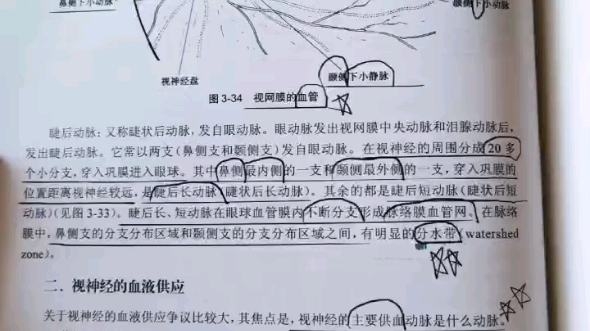 鼻侧下小动脉
颞侧下小动脉
视神经盘
颞侧下小静脉
图 3-34 视网膜的血管
睫后动脉：又称睫状后动脉，发自眼动脉。眼动脉发出视网膜中央动脉和泪腺动脉后，
发出睫后动脉。它常以两支（鼻侧支和颞侧支）发自眼动脉。在视神经的周围分成 20 多
个小分支，穿入巩膜进入眼球。其中鼻侧最内侧的一支和颞侧最外侧的一支，穿入巩膜的
位置距离视神经较远，是睫后长动脉（睫状后长动脉）。其余的都是睫后短动脉（睫状后短
动脉）（见图 3-33）。睫后长、短动脉在眼球血管膜内不断分支形成脉络膜血管网。在脉络
膜中，鼻侧支的分支分布区域和颞侧支的分支分布区域之间，有明显的分水带（watershed
zone）。
二．视神经的血液供应
关于视神经的血液供应争议比较大，其焦点是，视神经的主要供血动脉是什么动脉。